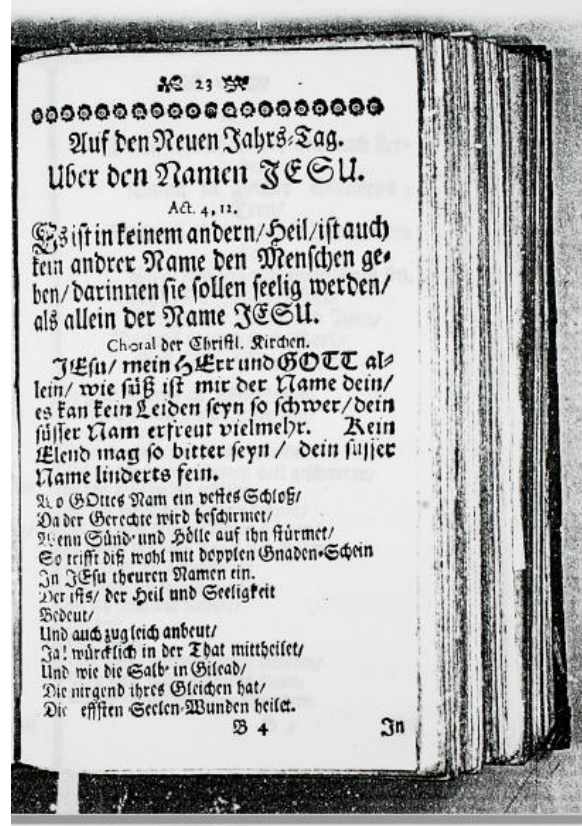 23
Auf den Neuen Jahrs-Tag.
Uber den Namen JESU.
Act. 4, 12.
Es ist in keinem andern/Heil/ist auch
kein andrer Name den Menschen ge-
ben/darinnen sie sollen seelig werden/
als allein der Name JESU.
Choral der Christl. Kirchen.
JEsu/ mein HErr und GOTT al-
lein/ wie süß ist mir der Name dein/
es kan kein Leiden seyn so schwer/dein
süsser Nam erfreut vielmehr. Kein
Elend mag so bitter seyn/ dein süsser
Name linderts fein.
Wo GOttes Nam ein vestes Schloß/
Da der Gerechte wird beschirmet/
Wenn Sünd- und Hölle auf ihn stürmet/
So trifft diß wohl mit dopplen Gnaden-Schein
In JEsu theuren Namen ein.
Der ists/ der Heil und Seeligkeit
Bedeut/
Und auch zugleich anbeut/
Ja! würcklich in der That mittheilet/
Und wie die Salb' in Gilead/
Die nirgend ihres Gleichen hat/
Die Seelen-Wunden heilet.
B 4 In